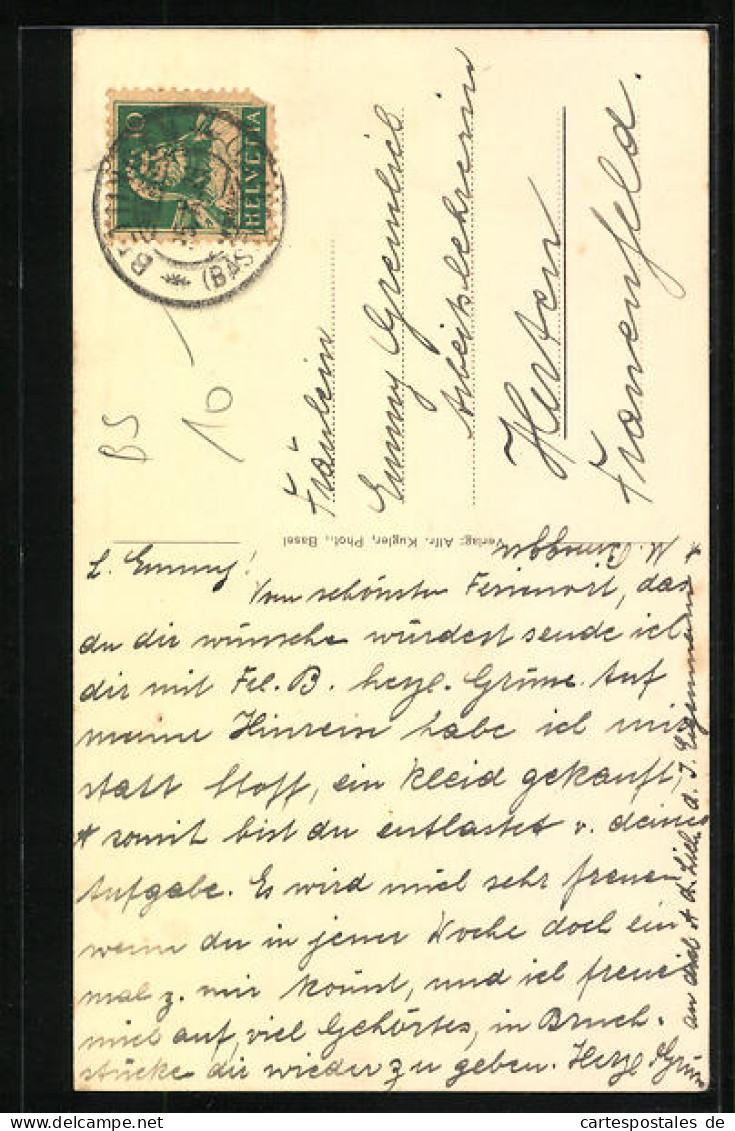 10
HELVETIA
BS
10
Fräulein
Emmy Greimlich
Arbeitslehrerin
Herten
Frauenfeld.
Verlag: Alfr. Kugler, Phot., Basel
L. Emmy!
Vom schönsten Ferienort, das
du dir wünsche würdest sende ich
dir mit Frl. B. herzl. Grüsse. Auf
meiner Hinreise habe ich mir
statt Stoff, ein Kleid gekauft,
somit bist du entlastet v. deiner
Aufgabe. Es wird mich sehr freuen
wenn du in jener Woche doch ein
mal z. mir kommst, und ich freue
mich auf, viel Gehörtes, in Bruch-
stücke dir wieder zu geben. Herzl. Grüsse
an dich
cartespostales de